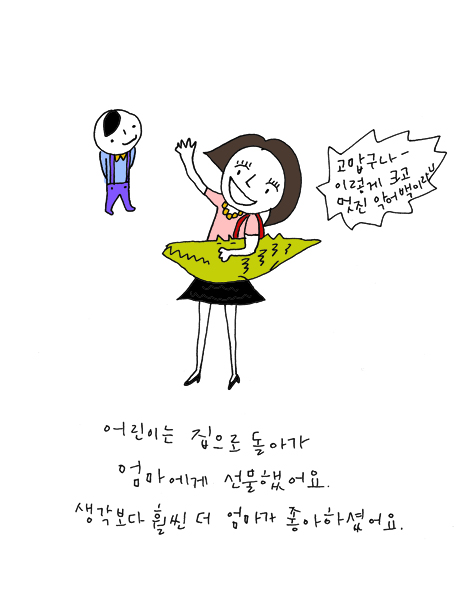 고맙구나~
이렇게 크고
멋진 악어백이라니
어린이는 집으로 돌아가
엄마에게 선물했어요.
생각보다 훨씬 더 엄마가 좋아하셨어요.